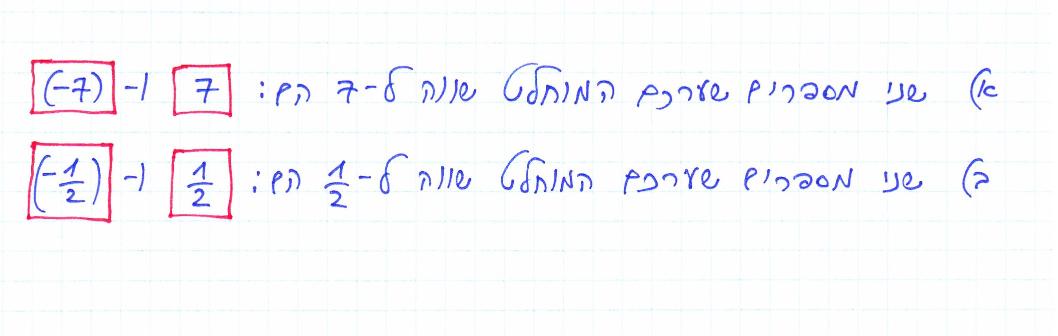 א) שני מספרים שערכם המוחלט שווה ל-7 הם: 7 ו- (-7)
ב) שני מספרים שערכם המוחלט שווה ל-1/2 הם: 1/2 ו- (-1/2)